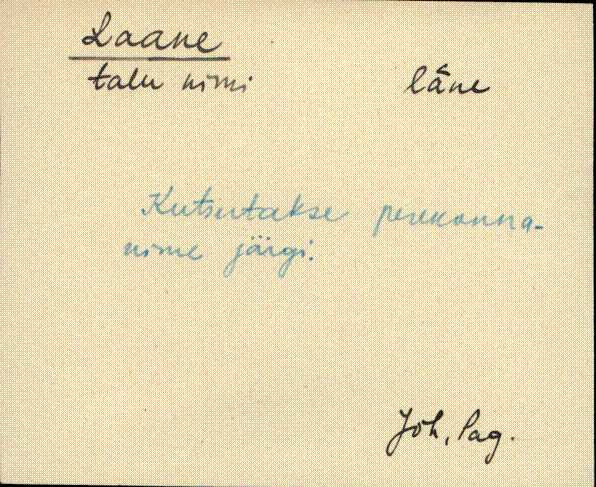 Laane
talu nimi läne
Kutsutakse perekonna-
nime järgi.
Jõh, Pag.